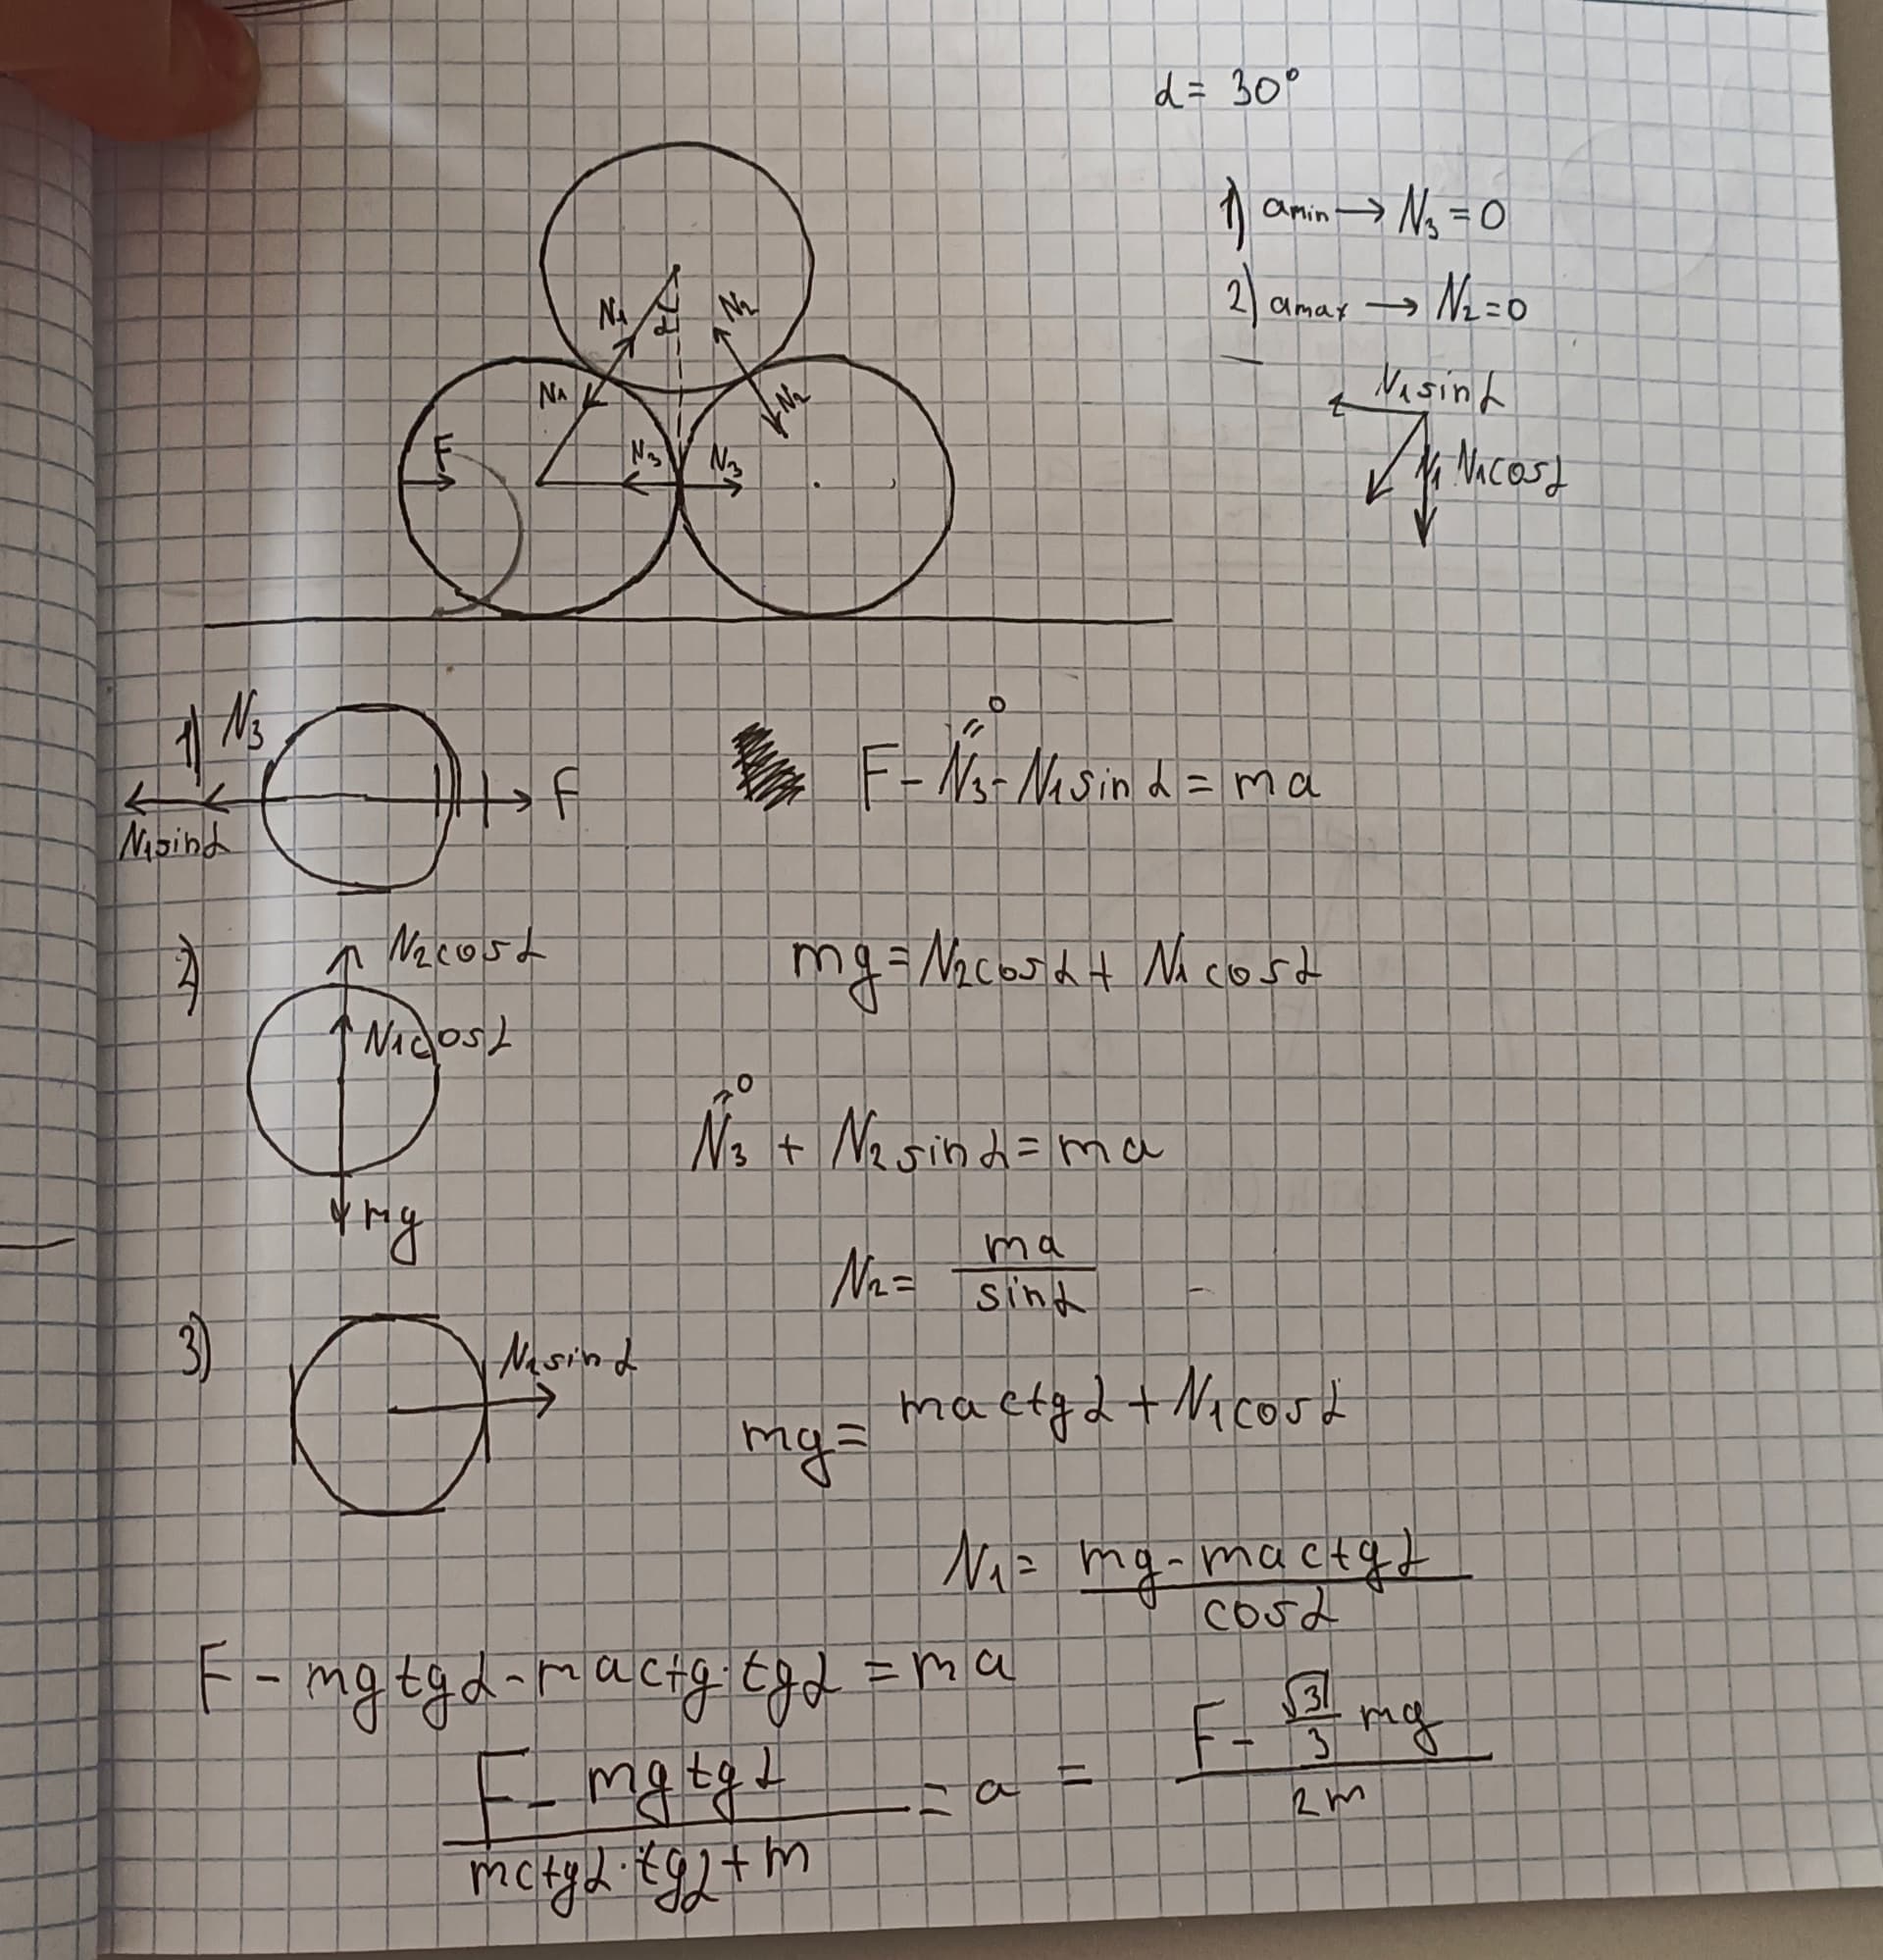 α = 30°
1) amin → N₃ = 0
2) amax → N₂ = 0
N₁ α N₂
N₁ N₂
F N₃ N₃
N₁ sin α
N₁ N₁ cos α
1) N₃
F - N₃ - N₁ sin α = ma
0
N₁ sin α F
2) N₂ cos α
mg = N₂ cos α + N₁ cos α
N₁ cos α
0
N₃ + N₂ sin α = ma
mg
N₂ = ma / sin α
3) N₂ sin α
mg = ma ctg α + N₁ cos α
N₁ = mg - ma ctg α / cos α
F - mg tg α - ma ctg · tg α = ma
F - mg tg α / m ctg α · tg α + m = a = F - √3/3 mg / 2m